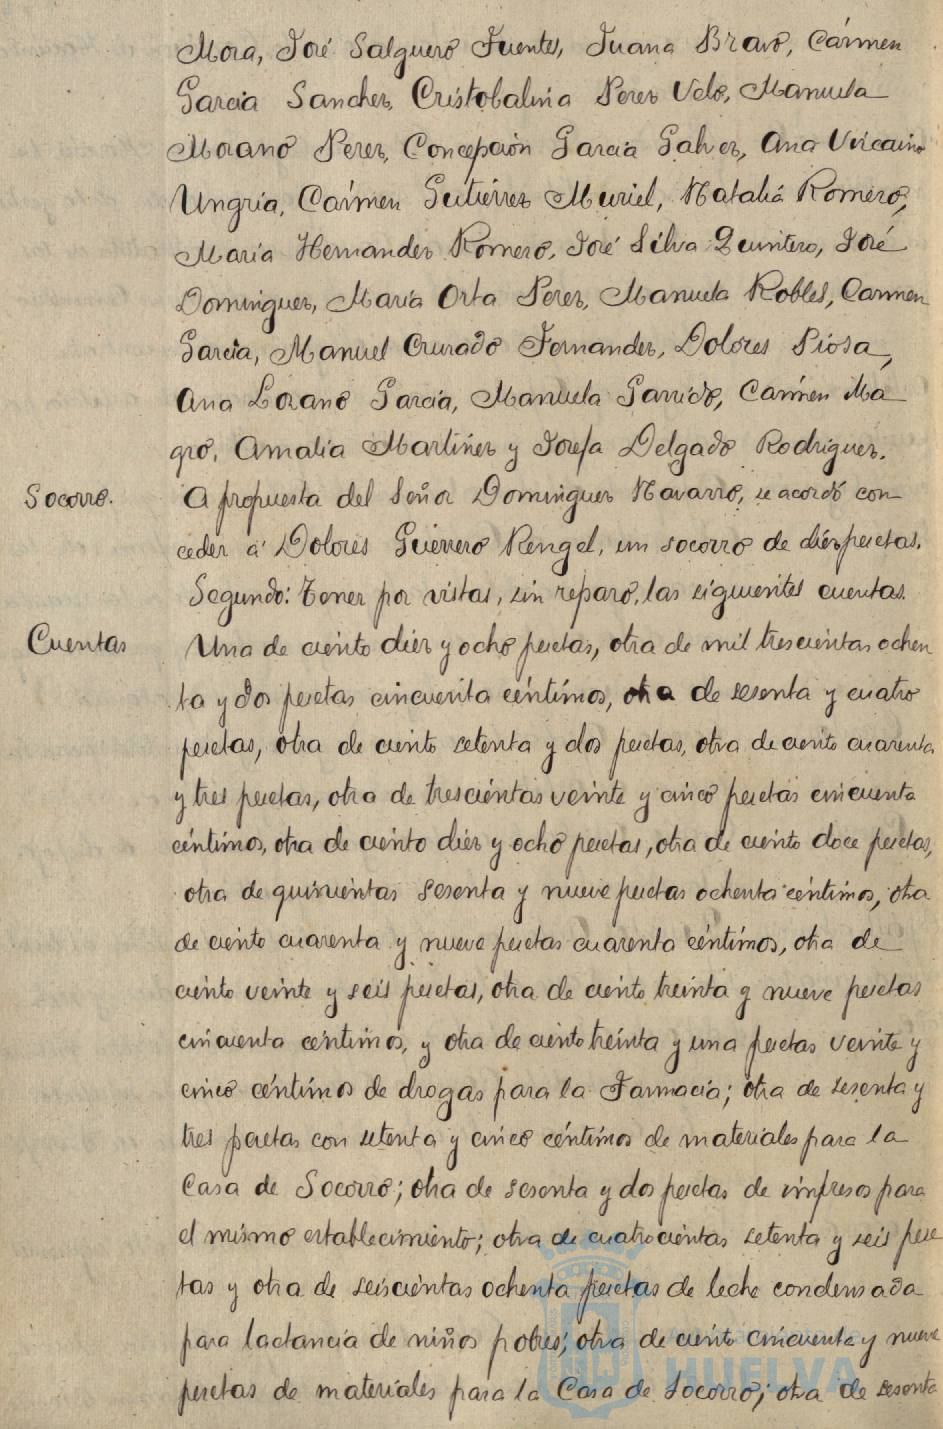 Mora, José Salguero Fuentes, Juana Bravo, Cármen
García Sanchez, Cristobalina Perez Velo, Manuela
Morano Perez, Concepción García Galvez, Ana Vizcaino
Ungria, Cármen Gutiérrez Muriel, Natalia Romero,
María Hernandez Romero, José Silva Quintero, José
Dominguez, María Orta Perez, Manuela Robles, Carmen
García, Manuel Cruzado Fernandez, Dolores Piosa,
Ana Lozano García, Manuela Garrido, Cármen Ma
gro, Amalia Martiñez y Josefa Delgado Rodriguez.
Socorro. A propuesta del Señor Dominguez Navarro, se acordó con
ceder á Dolores Guerrero Rengel, un socorro de diez pesetas.
Segundo: Tener por vistas, sin reparo, las siguientes cuentas.
Cuentas Una de ciento diez y ocho pesetas, otra de mil trescientas ochen
ta y dos pesetas cincuenta céntimos, otra de sesenta y cuatro
pesetas, otra de ciento setenta y dos pesetas, otra de ciento cuarenta
y tres pesetas, otra de trescientas veinte y cinco pesetas cincuenta
céntimos, otra de ciento diez y ocho pesetas, otra de ciento doce pesetas,
otra de quinientas sesenta y nueve pesetas ochenta céntimos, otra
de ciento cuarenta y nueve pesetas cuarenta céntimos, otra de
ciento veinte y seis pesetas, otra de ciento treinta y nueve pesetas
cincuenta céntimos, y otra de ciento treinta y una pesetas veinte y
cinco céntimos de drogas para la Farmacia; otra de sesenta y
tres pesetas con setenta y cinco céntimos de materiales para la
Casa de Socorro; otra de sesenta y dos pesetas de impresos para
el mismo establecimiento; otra de cuatrocientas setenta y seis pese
tas y otra de seiscientas ochenta pesetas de leche condensada
para lactancia de niños pobres; otra de ciento cincuenta y nueve
pesetas de materiales para la Casa de Socorro; otra de sesenta
HUELVA